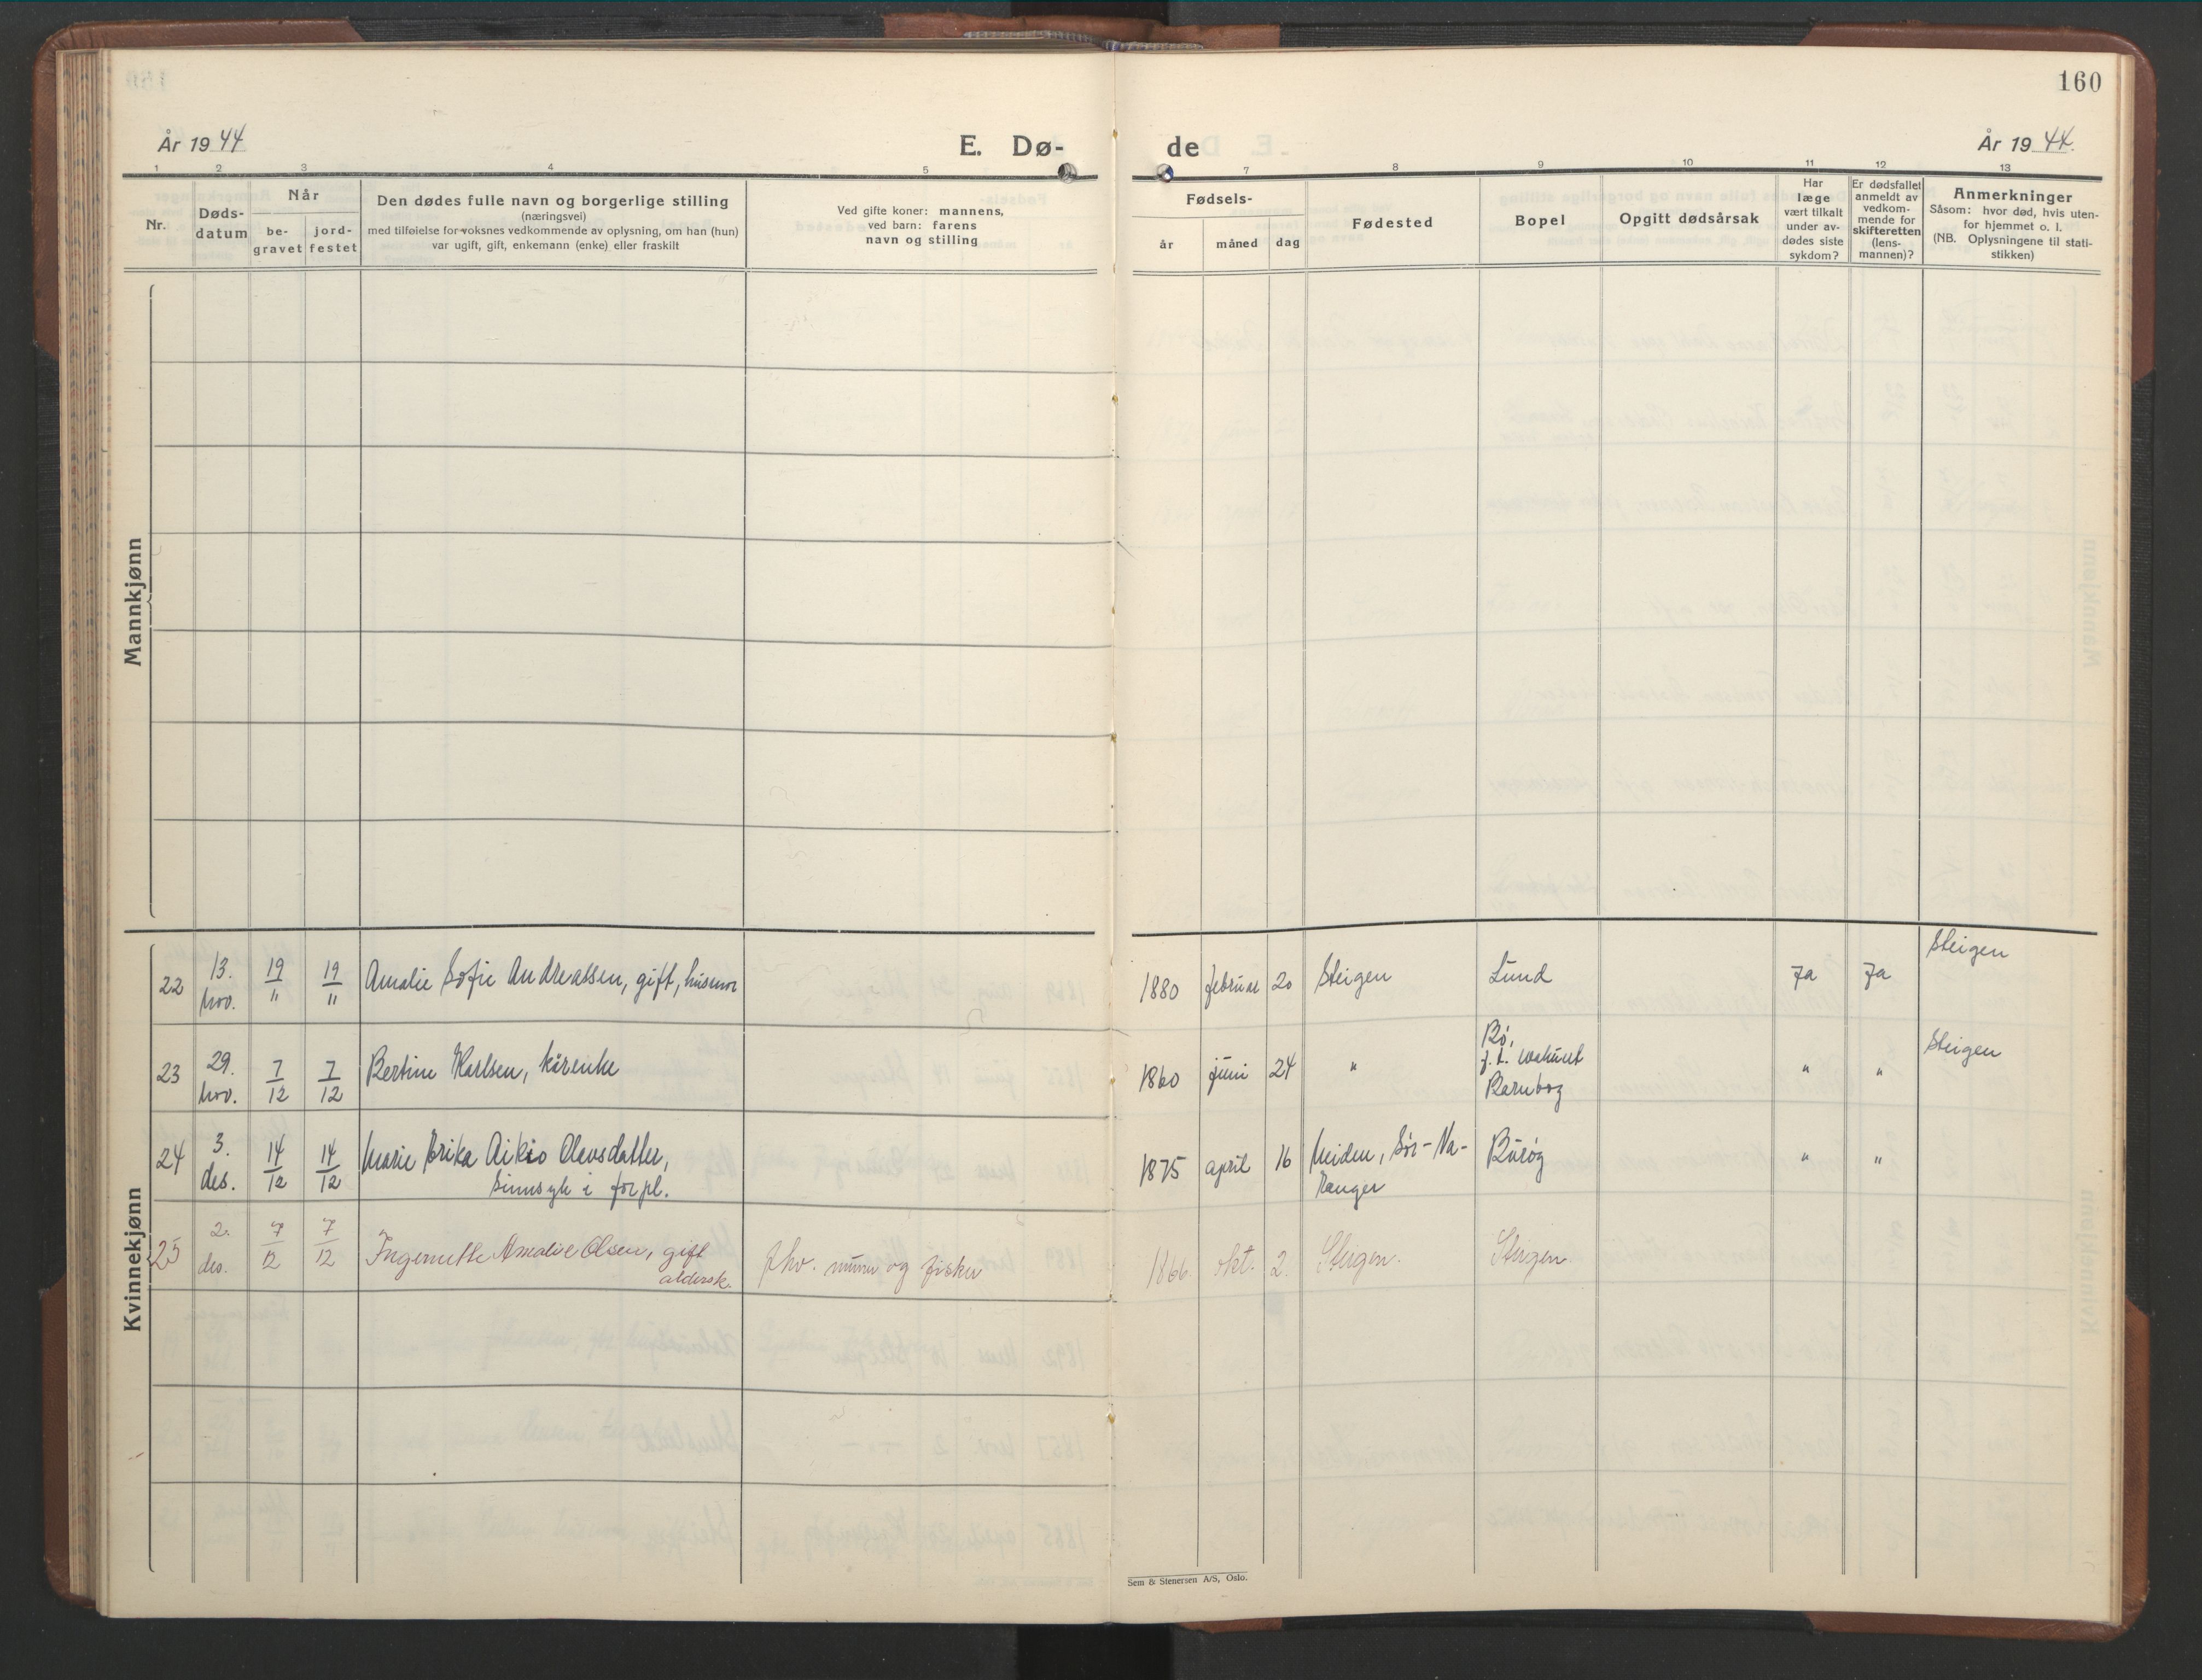 160
År 1944
E. Dø-
de
År 1944.
1 2 3 4 5 7 8 9 10 11 12 13
Nr.
Døds-
datum
Når
be-
gravet
jord-
festet
Den dødes fulle navn og borgerlige stilling
(næringsvei)
med tilføielse for voksnes vedkommende av oplysning, om han (hun)
var ugift, gift, enkemann (enke) eller fraskilt
Ved gifte koner: mannens,
ved barn: farens
navn og stilling
Fødsels-
år
måned
dag
Fødested
Bopel
Opgitt dødsårsak
Har
læge
vært tilkalt
under av-
dødes siste
sykdom?
Er dødsfallet
anmeldt av
vedkom-
mende for
skifteretten
(lens-
mannen)?
Anmerkninger
Såsom: hvor død, hvis uten-
for hjemmet o. l.
(NB. Oplysningene til stati-
stikken)
Mannkjønn
Kvinnekjønn
22 13. nov. 19/11 19/11 Amalie Sofie Andreassen, gift, husmor 1880 februar 20 Steigen Lund Ja Ja Steigen
23 29. nov. 7/12 7/12 Bertine Karlsen, kårenke 1860 juni 24 " Bø,
f.t. evakuert
Barnbog " " Steigen
24 3. des. 14/12 14/12 Marie Erika Aikio Olavsdatter,
sinnsyk i forpl. 1875 april 16 Neiden, Sør-Va-
ranger Burøy " "
25 2. des. 7/12 7/12 Ingernette Amalie Olsen, gift
aldersk. fhv. murer og fisker 1866 okt. 2. Steigen. Steigen.
Sem & Stenersen A/S, Oslo.